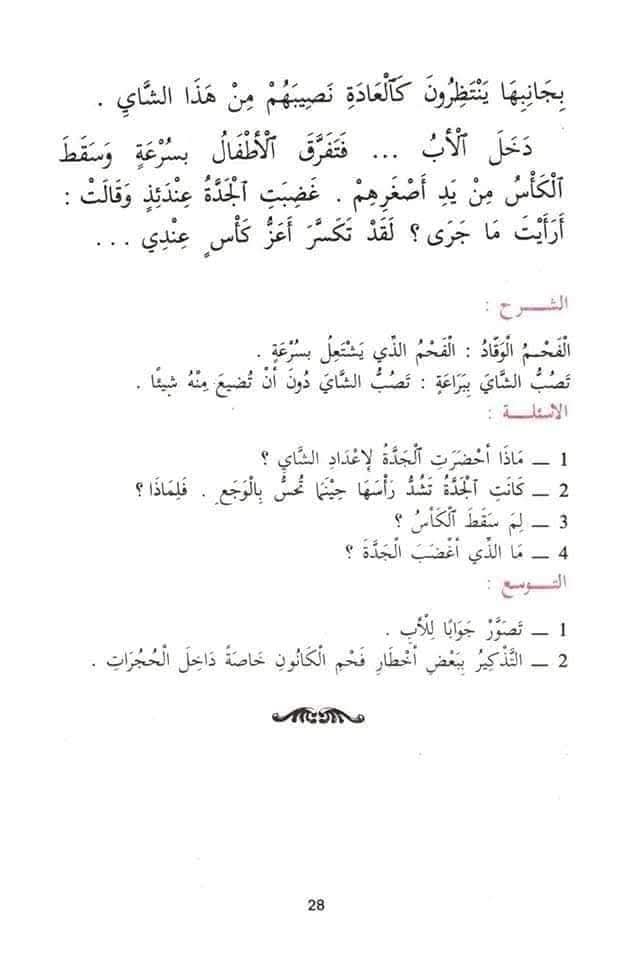 بِجَانِبِهَا يَنْتَظِرُونَ كَٱلْعَادَةِ نَصِيبَهُمْ مِنْ هَذَا الشَّايِ .
دَخَلَ ٱلْأَبُ ... فَتَفَرَّقَ ٱلْأَطْفَالُ بِسُرْعَةٍ وَسَقَطَ
ٱلْكَأْسُ مِنْ يَدِ أَصْغَرِهِمْ . غَضِبَتِ ٱلْجَدَّةُ عِنْدَئِذٍ وَقَالَتْ :
أَرَأَيْتَ مَا جَرَى ؟ لَقَدْ تَكَسَّرَ أَعَزُّ كَأْسٍ عِنْدِي ...
الشـــرح :
الْفَحْـمُ الْوَقَّادُ : الْفَحْمُ الذِّي يَشْتَعِلُ بِسُرْعَةٍ .
تَصُبُّ الشَّايَ بِبَرَاعَةٍ : تَصُبُّ الشَّايَ دُونَ أَنْ تُضِيعَ مِنْهُ شَيْئًا .
الأسئلـــة :
1 ــ مَاذَا أَحْضَرَتِ ٱلْجَدَّةُ لِإعْدَادِ الشَّايِ ؟
2 ــ كَانَتِ الْجَدَّةُ تَشُدُّ رَأْسَهَا حِينَمَا تُحِسُّ بِالْوَجَعِ . فَلِمَاذَا ؟
3 ــ لِمَ سَقَطَ ٱلْكَأْسُ ؟
4 ــ مَا الذِّي أَغْضَبَ الْجَدَّةَ ؟
التـــوسع :
1 ــ تَصَوَّرْ جَوَابًا لِلْأَبِ .
2 ــ التَّذْكِيرُ بِبَعْضِ أَخْطَارِ فَحْمِ الْكَانُونِ خَاصَةً دَاخِلَ الْحُجُرَاتِ .
28